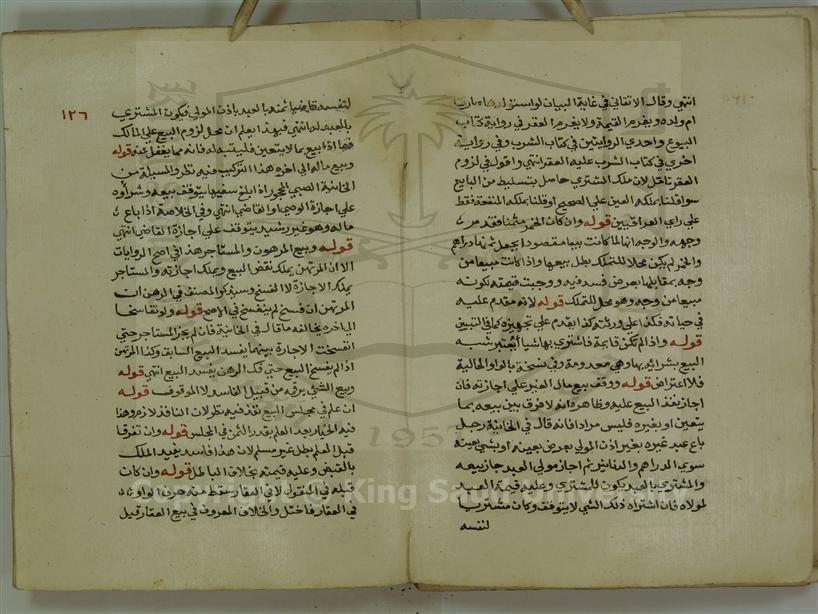 انتهى وقال الاتقاني في غاية البيان لو استولدها صارت
ام ولده ويغرم القيمة ولا يغرم العقر في رواية كتاب
البيوع واحدي الروايتين في كتاب الشرب وفي رواية
اخري في كتاب الشرب عليه العقر انتهى واقول في لزوم
العقر تامل لان ملك المشتري حاصل بتسليط من البايع
سوا قلنا يملكه العين علي الصحيح او قلنا يملكه المنفعة فقط
علي راي العراقيين قوله وان كان الخمر مثمنا فقد مر
وجهه والوجه انها لما كانت بيامقصودا لجعل ثمنها دراهم
والخمر لم يكن محلا للتملك بطل بيعها واذا كانت مبيعا من
وجه بمقابلها بعرض فسد فيه ووجبت قيمته لكونه
مبيعا من وجه وهو محل للتملك قوله لانه مقدم عليه
في حياته فكذا علي ورثته كذا يقدم علي تجهيزه كما في التبيين
قوله واذا لم تكن قايمة فاشتري بها شيا يعتبر شبه
البيع بشرائه بها وهي معدومة وفي نسخة بالواو الحالية
فلا اعتراض قوله ووقف بيع مال الغير علي اجازته فان
اجاز نفذ البيع عليه وظاهره انه لا فرق بين بيعه بما
يتعين او بغيره فليس مرادا فانه قال في الخانية رجل
باع عبد غيره بغير اذن المولي بعرض بعينه او بشي بعينه
سوي الدراهم والدنانير ثم اجاز مولي العبد جاز بيعه
والمشتري بالعبد يكون للمشتري وعليه قيمة العبد
لمولاه فان اشتراه ذلك الشي لا يتوقف وكان مشتريا
لنفسه
١٢٦
لنفسه قاضيا ثمنه بالعبد باذن المولي فيكون المشتري
بالعبد له انتهى فبهذا يعلم ان محل لزوم البيع علي المالك
فيما اذا بيع بما لا يتعين فليتنبه له فانه مما يغفل عنه قوله
وبيع ماله الي اخره هذا التركيب فيه نظر والمسئلة من
الخانية الصبي المحجور اذا بلغ سفيها يتوقف بيعه وشراؤه
علي اجازة الوصي او القاضي انتهى وفي الخلاصة اذا باع
ماله وهو غير رشيد يتوقف علي اجازة القاضي انتهى
قوله وبيع المرهون والمستاجر هذا في اصح الروايات
الا ان المرتهن يملك نقض البيع ويملك اجازته والمستاجر
يملك الاجازة لا الفسخ وسيذكر المصنف في الرهن ان
المرتهن ان فسخ لم ينفسخ في الاصح قوله ولو تفاسخا
الي اخره يخالفه ما قال في الخانية فان لم يجز المستاجر حتي
انفسخت الاجارة بينهما يفسد البيع السابق وكذا المرتهن
اذا لم يفسخ البيع حتي فك الرهن يفسد البيع انتهى قوله
وبيع الشي برقمه من قبيل الفاسد لا الموقوف قوله
ان علم في مجلس البيع نفذ فيه مقولات النافذ لازم وهذا
فيه الخيار بعد العلم بقدر الثمن في المجلس قوله وان تفرقا
قبل العلم بطل غير مسلم لان هذا فاسد يفيد الملك
بالقبض وعليه قيمته بخلاف الباطل قوله وان كان
قبله في المنقول لا في العقار سقط منه حرف الواو
في العقار فاختل والخلاف المعروف في بيع العقار قبل
Copyright © King Saud University
1957